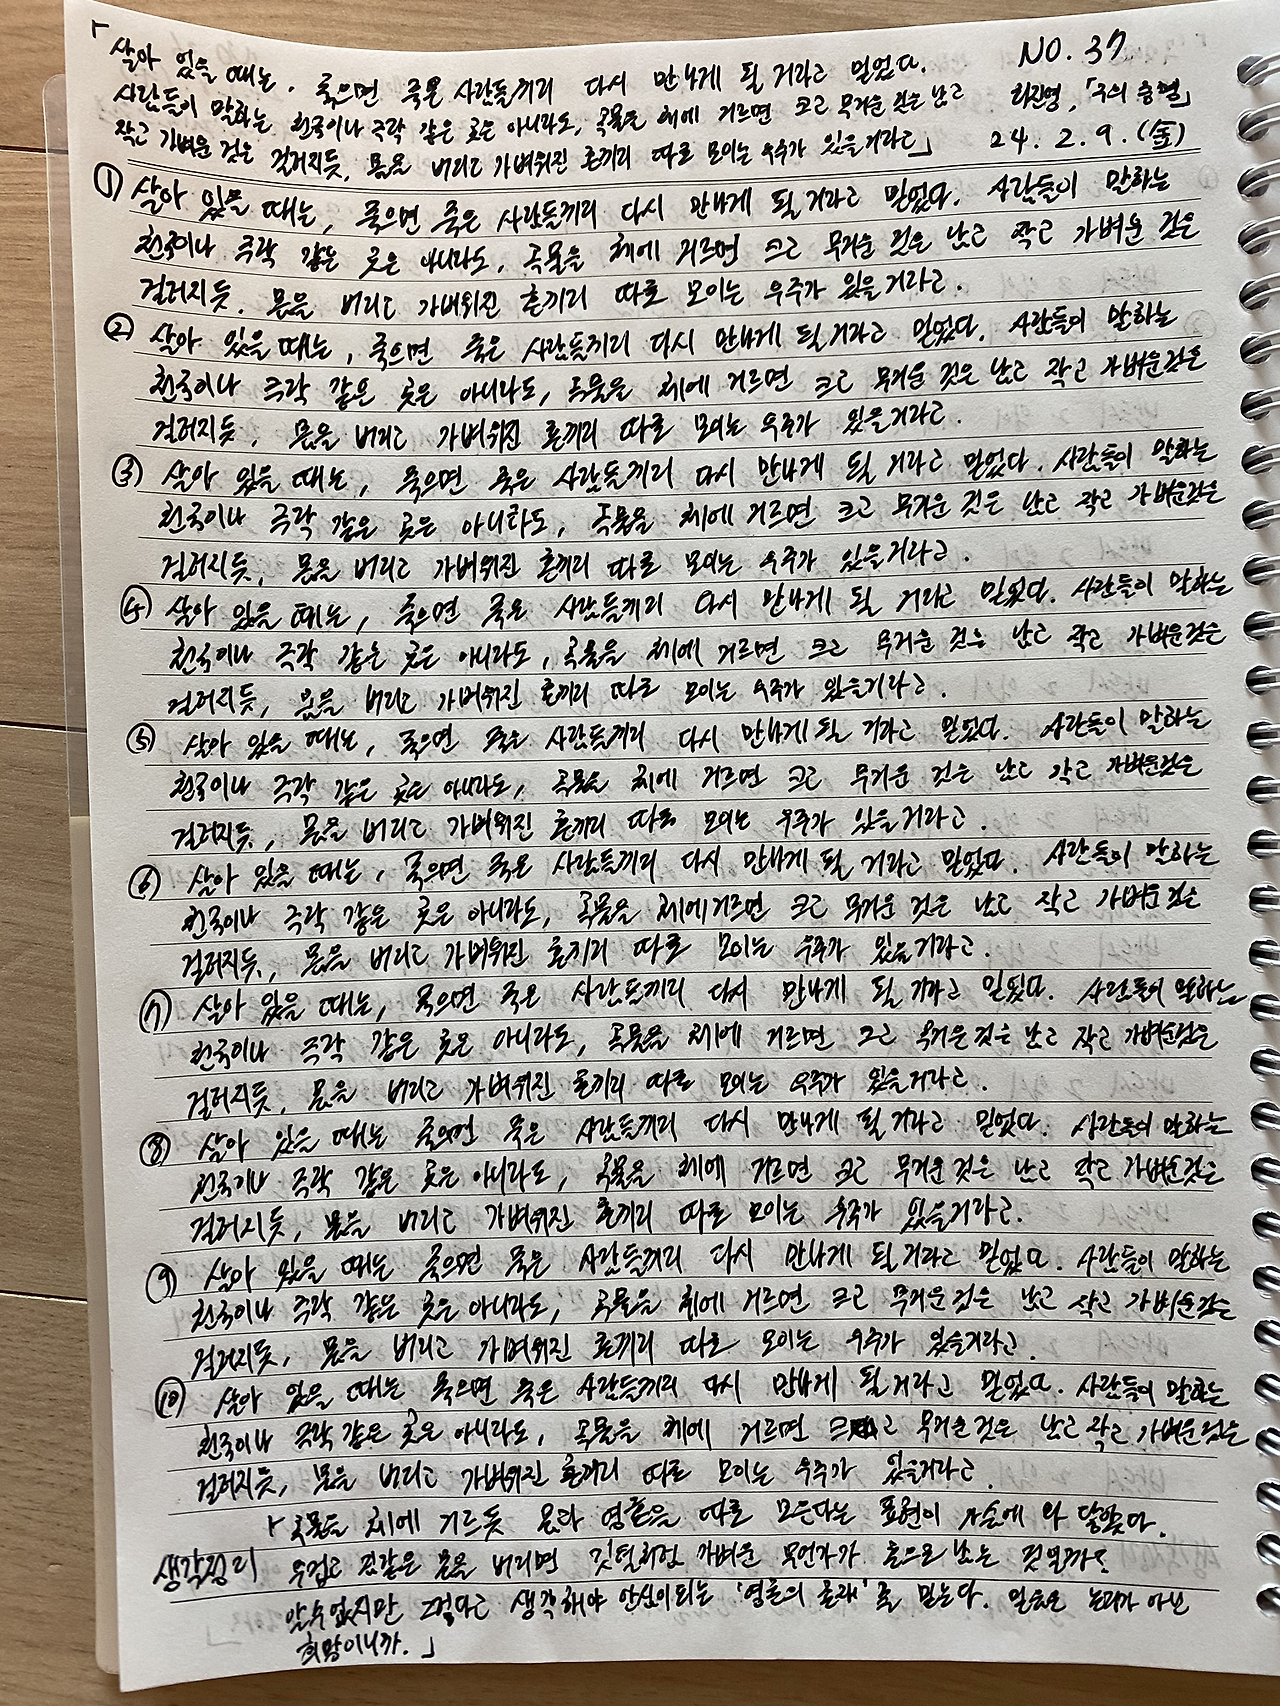 「살아 있을 때는, 죽으면 죽은 사람들끼리 다시 만나게 될 거라고 믿었다. NO. 37
사람들이 말하는 천국이나 극락 같은 곳은 아니라도, 곡물을 체에 거르면 크고 무거운 것은 남고 하진영, 「우의 승별」
작고 가벼운 것은 걸러지듯, 몸을 버리고 가벼워진 혼끼리 따로 모이는 우주가 있을거라고」 24. 2. 9. (金)
① 살아 있을 때는, 죽으면 죽은 사람들끼리 다시 만나게 될 거라고 믿었다. 사람들이 말하는
천국이나 극락 같은 곳은 아니라도, 곡물을 체에 거르면 크고 무거운 것은 남고 작고 가벼운 것은
걸러지듯. 몸을 버리고 가벼워진 혼끼리 따로 모이는 우주가 있을거라고.
② 살아 있을 때는, 죽으면 죽은 사람들끼리 다시 만나게 될 거라고 믿었다. 사람들이 말하는
천국이나 극락 같은 곳은 아니라도, 곡물을 체에 거르면 크고 무거운 것은 남고 작고 가벼운것은
걸러지듯, 몸을 버리고 가벼워진 혼끼리 따로 모이는 우주가 있을거라고.
③ 살아 있을 때는, 죽으면 죽은 사람들끼리 다시 만나게 될 거라고 믿었다. 사람들이 말하는
천국이나 극락 같은 곳은 아니라도, 곡물을 체에 거르면 크고 무거운 것은 남고 작고 가벼운것은
걸러지듯, 몸을 버리고 가벼워진 혼끼리 따로 모이는 우주가 있을거라고.
④ 살아 있을 때는, 죽으면 죽은 사람들끼리 다시 만나게 될 거라고 믿었다. 사람들이 말하는
천국이나 극락 같은 곳은 아니라도, 곡물을 체에 거르면 크고 무거운 것은 남고 작고 가벼운것은
걸러지듯, 몸을 버리고 가벼워진 혼끼리 따로 모이는 우주가 있을거라고.
⑤ 살아 있을 때는, 죽으면 죽은 사람들끼리 다시 만나게 될 거라고 믿었다. 사람들이 말하는
천국이나 극락 같은 곳은 아니라도, 곡물을 체에 거르면 크고 무거운 것은 남고 작고 가벼운것은
걸러지듯, 몸을 버리고 가벼워진 혼끼리 따로 모이는 우주가 있을거라고.
⑥ 살아 있을 때는, 죽으면 죽은 사람들끼리 다시 만나게 될 거라고 믿었다. 사람들이 말하는
천국이나 극락 같은 곳은 아니라도, 곡물을 체에 거르면 크고 무거운 것은 남고 작고 가벼운 것은
걸러지듯, 몸을 버리고 가벼워진 혼끼리 따로 모이는 우주가 있을거라고.
⑦ 살아 있을 때는, 죽으면 죽은 사람들끼리 다시 만나게 될 거라고 믿었다. 사람들이 말하는
천국이나 극락 같은 곳은 아니라도, 곡물을 체에 거르면 크고 무거운 것은 남고 작고 가벼운것은
걸러지듯, 몸을 버리고 가벼워진 혼끼리 따로 모이는 우주가 있을거라고.
⑧ 살아 있을 때는 죽으면 죽은 사람들끼리 다시 만나게 될 거라고 믿었다. 사람들이 말하는
천국이나 극락 같은 곳은 아니라도, 곡물을 체에 거르면 크고 무거운 것은 남고 작고 가벼운것은
걸러지듯, 몸을 버리고 가벼워진 혼끼리 따로 모이는 우주가 있을거라고.
⑨ 살아 있을 때는 죽으면 죽은 사람들끼리 다시 만나게 될 거라고 믿었다. 사람들이 말하는
천국이나 극락 같은 곳은 아니라도, 곡물을 체에 거르면 크고 무거운 것은 남고 작고 가벼운것은
걸러지듯, 몸을 버리고 가벼워진 혼끼리 따로 모이는 우주가 있을거라고.
⑩ 살아 있을 때는 죽으면 죽은 사람들끼리 다시 만나게 될 거라고 믿었다. 사람들이 말하는
천국이나 극락 같은 곳은 아니라도, 곡물을 체에 거르면 크고 무거운 것은 남고 작고 가벼운 것은
걸러지듯, 몸을 버리고 가벼워진 혼끼리 따로 모이는 우주가 있을거라고.
「곡물을 체에 거르듯 몸과 영혼을 따로 모은다는 표현이 가슴에 와 닿았다.
생각정리 무겁고 짐같은 몸을 버리면 깃털처럼 가벼운 무언가가 혼으로 남는 것일까?
알수없지만 그렇다고 생각해야 안심이되는 '영혼의 존재'를 믿는다. 믿음은 논리가 아닌
희망이니까.」